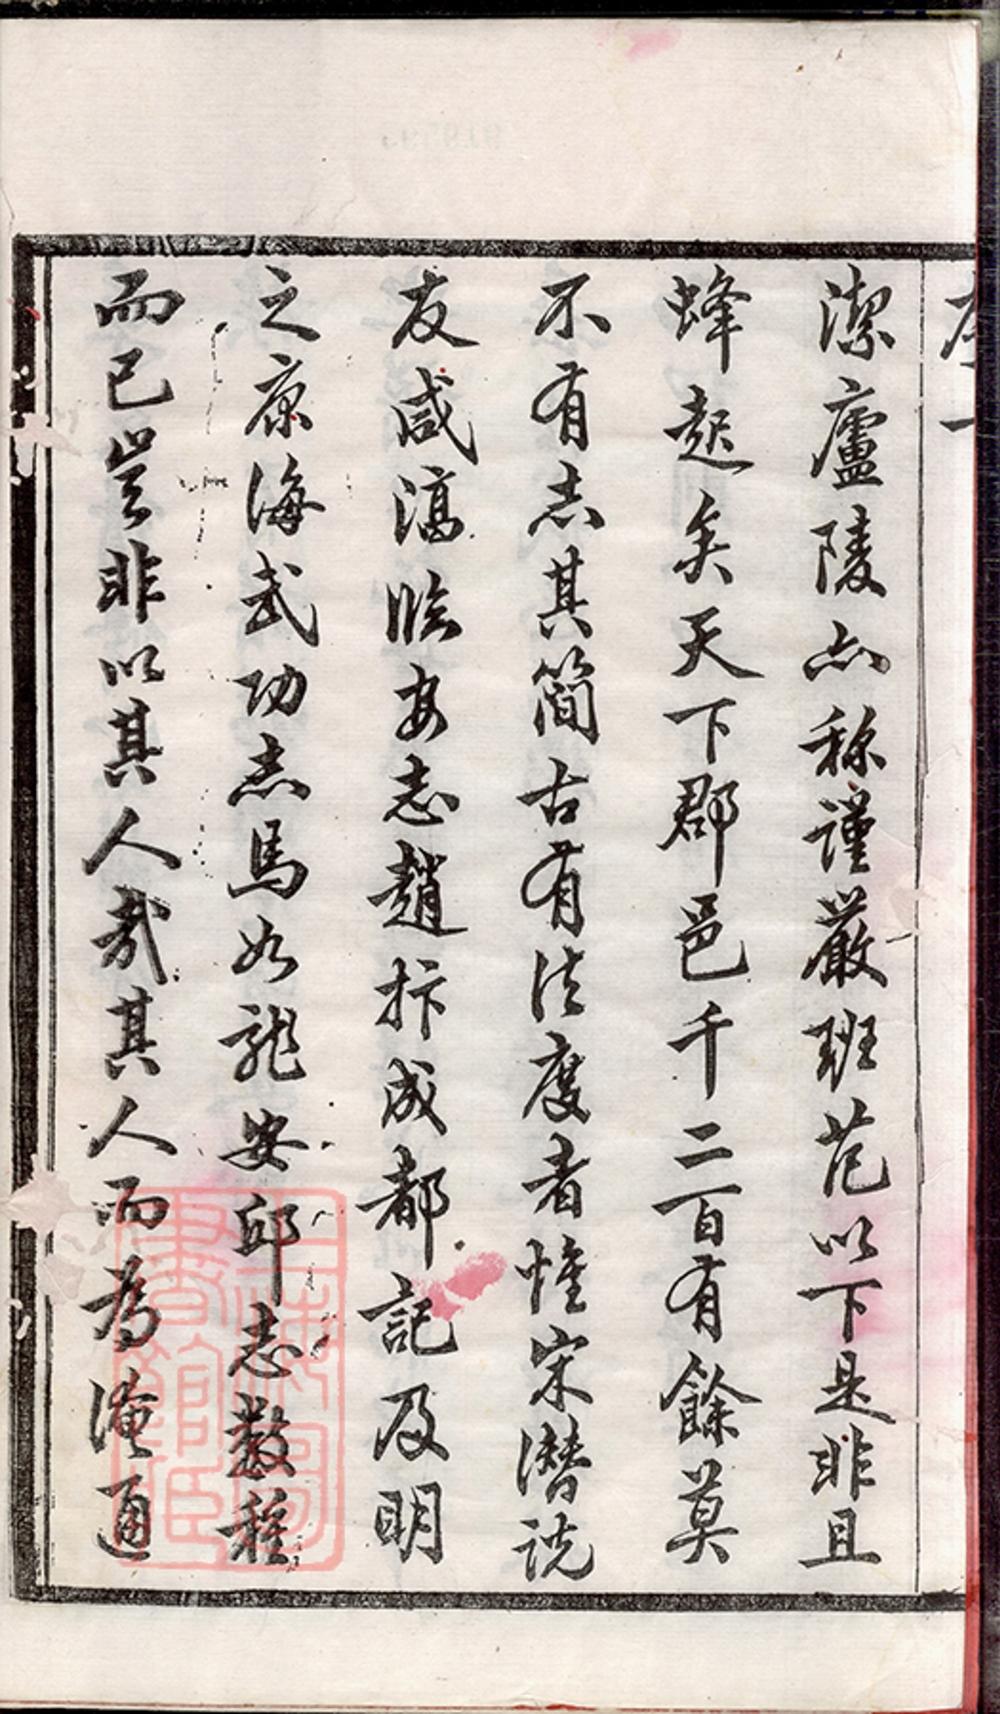 序一
潔廬陵亦称謹嚴班范以下是非且
蜂起矣天下郡邑千二百有餘莫
不有志其簡古有法度者惟宋潛说
友咸淳臨安志趙抃成都記及明
之康海武功志馬如龍安邱志数種
而已豈非以其人哉其人而為淹通
上海圖書館藏